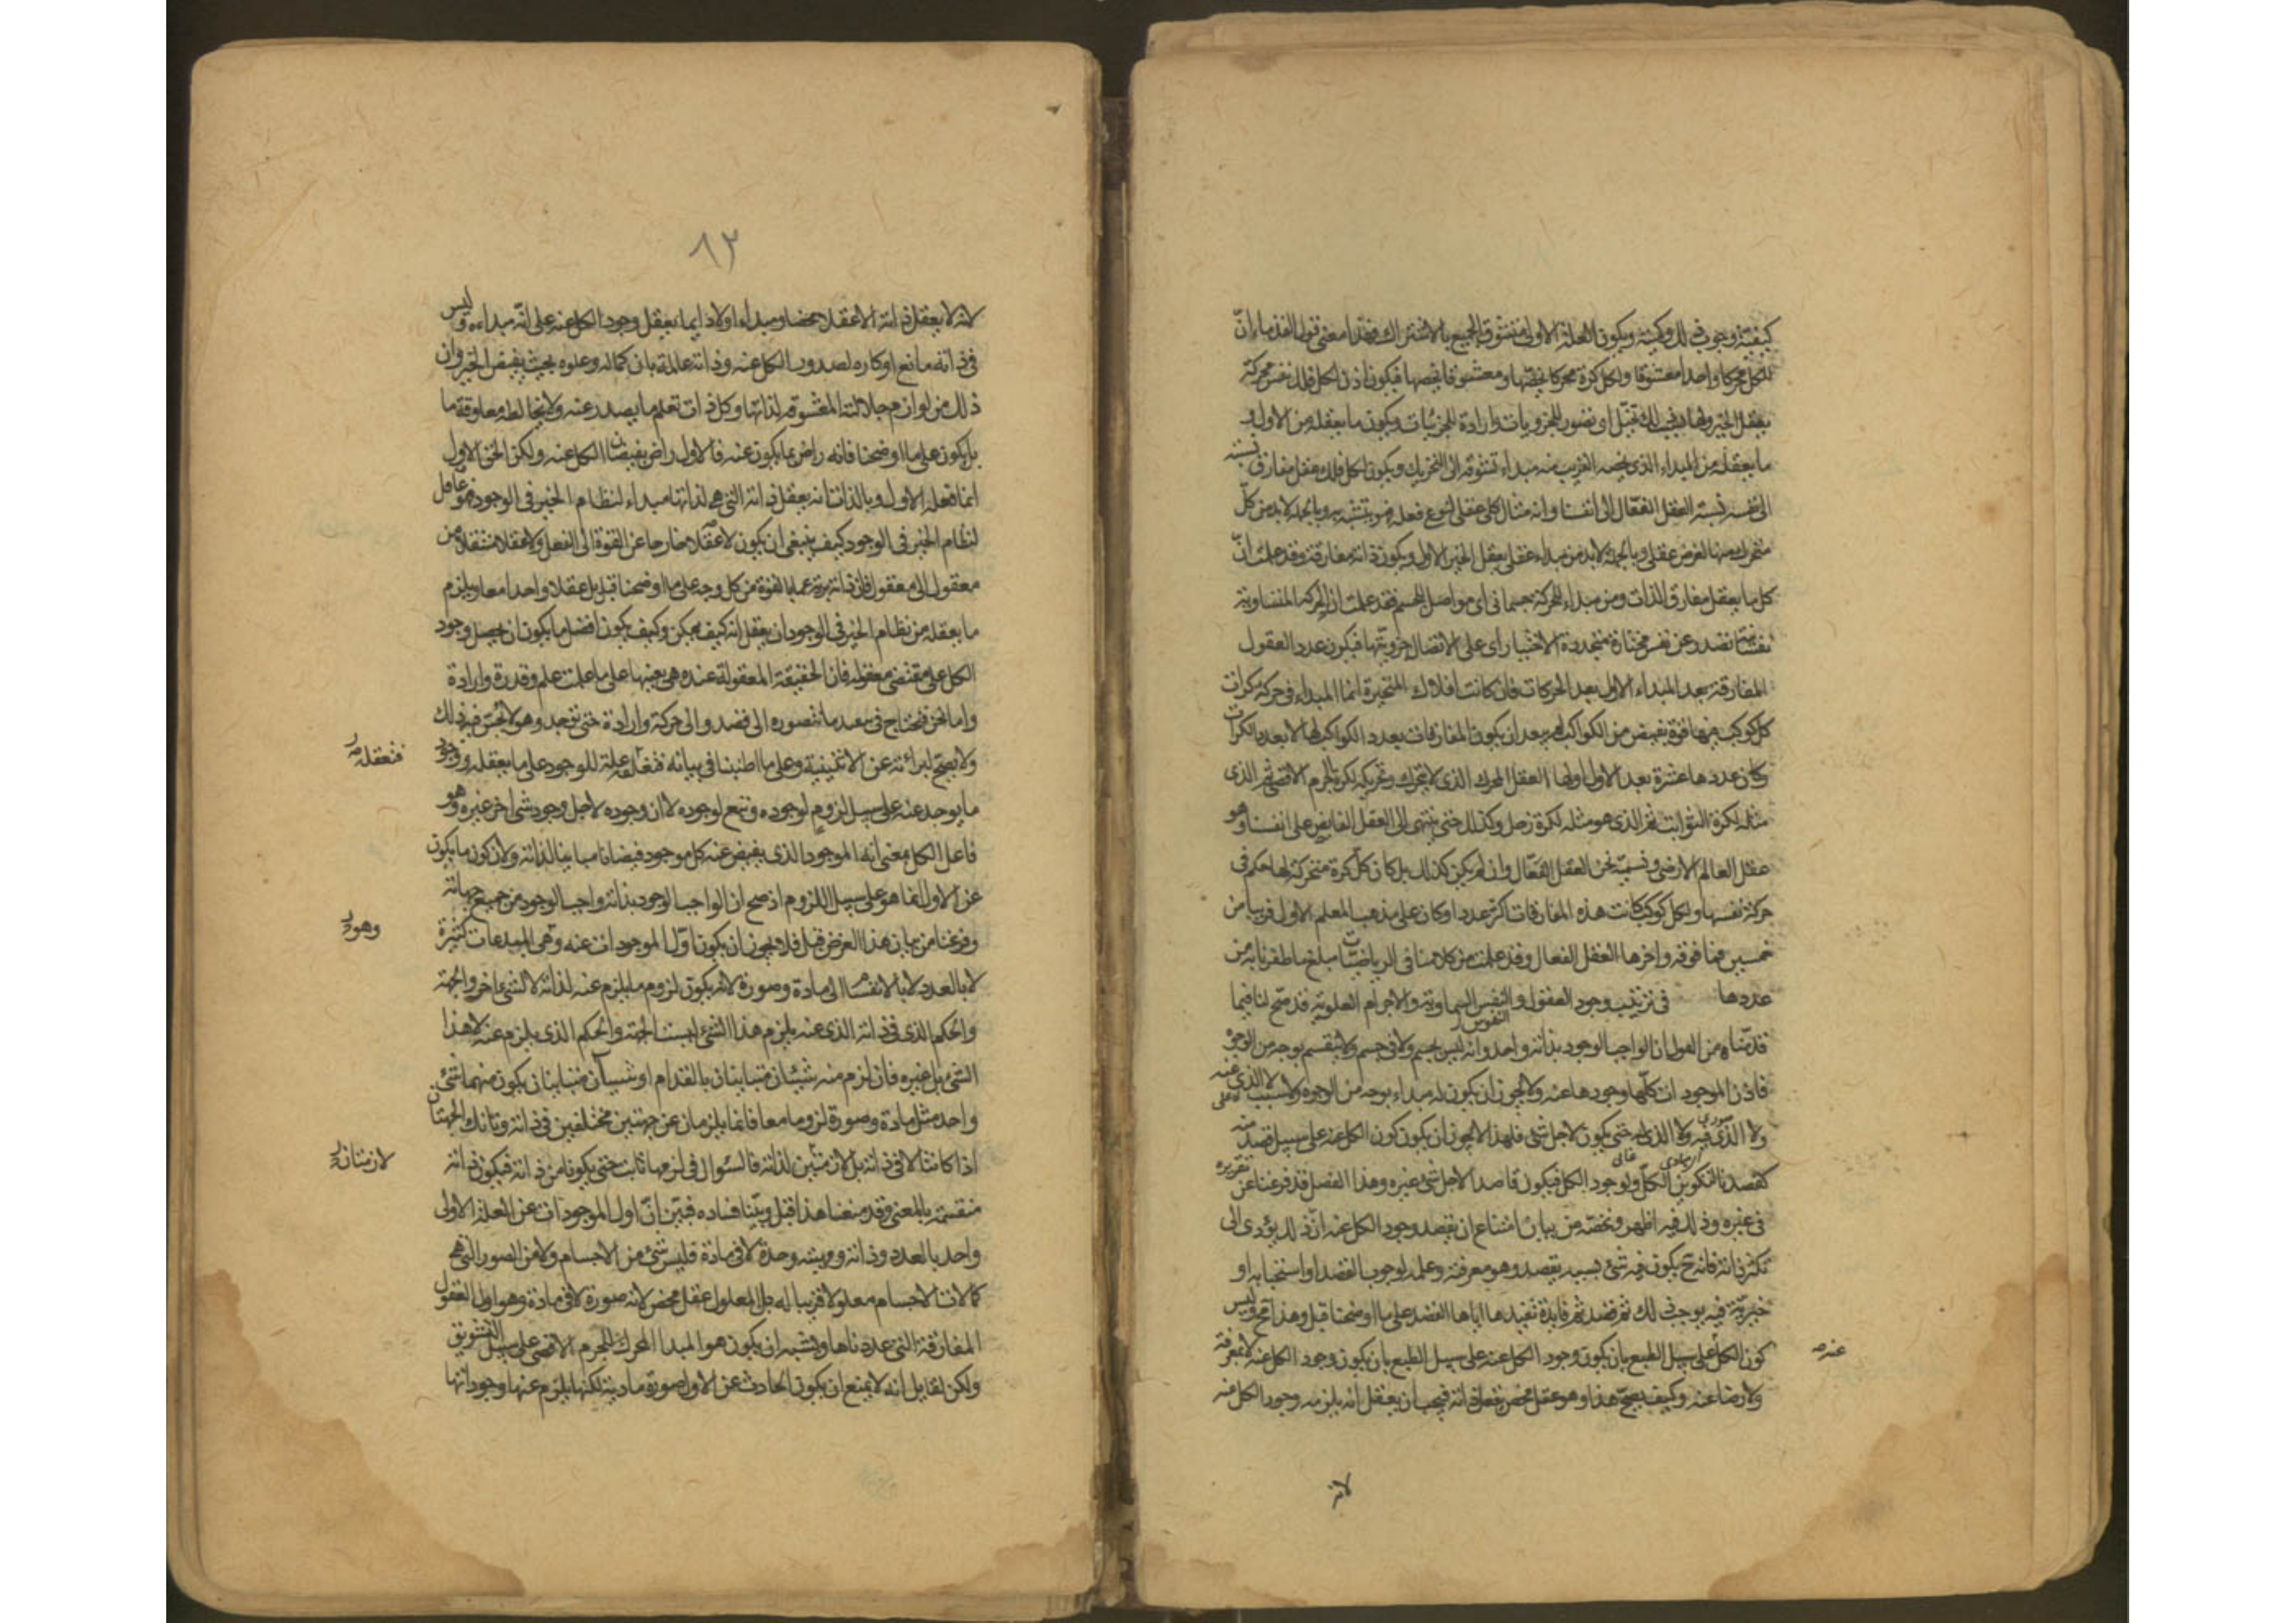 كيفية وجوب ذلك وكمية ويكون العلة الاولى متشوق الجميع بالاشتراك فهذا معنى قول القدماء ان
للكل محركا واحدا معشوقا ولكل كرة محركا يخصها ومعشوقا يخصها فيكون اذن لكل فلك نفس محركة
يعقل الخير ولها بسبب ذلك تخيل اى تصور للجزويات وارادة للجزئيات ويكون ما يعقله من الاول و
ما يعقله من المبداء الذى يخصه القريب منه مبداء تشوقه الى التحريك ويكون لكل فلك عقل مفارق نسبته
الى نفسه نسبة العقل الفعال الى انفسنا وانه مثال كلى عقلى لنوع فعله فهو يتشبه به وبالجملة لابد من كل
متحرك منها لغرض عقلى وبالجملة لابد من مبداء عقلى يعقل الخير الاول ويكون ذاته مفارقة وقد علمت ان
كل ما يعقل مفارق الذات ومن مبداء للحركة جسمانى اى مواصل للجسم فقد علمت ان الحركة السماوية
نفسانية تصدر عن نفس مختارة متجددة الاختيار اى على الاتصال جزويتها فيكون عدد العقول
المفارقة بعد المبداء الاول بعد الحركات فان كانت افلاك المتحيرة انما المبداء فى حركة كرات
كل كوكب منها قوة تفيض من الكواكب لم يبعد ان يكون المفارقات بعدد الكواكب لها لا بعدد الكرات
وكان عددها عشرة بعد الاول اولها العقل المحرك الذى لا يتحرك وتحريكه لكرة الجرم الاقصى ثم الذى
مثله لكرة الثوابت ثم الذى هو مثله لكرة زحل وكذلك حتى ينتهى الى العقل الفايض على انفسنا وهو
عقل العالم الارضى ونسميه نحن العقل الفعال وان لم يكن كذلك بل كان كل كرة متحركة لها حكم فى
حركة نفسها ولكل كوكب كانت هذه المفارقات اكثر عددا وكان على مذهب المعلم الاول قريبا من
خمسين فما فوقه واخرها العقل الفعال وقد علمت من كلامنا فى الرياضيات مبلغ ما ظفرنا به من
عددها فى ترتيب وجود العقول والنفس السماوية والاجرام العلوية قد صح لنا فيما
النفوس
قدمناه من القول ان الواجب الوجود بذاته واحد وانه ليس بجسم ولا فى جسم ولا ينقسم بوجه من الوجوه
فاذن الموجودات كلها وجودها عنه ولا يجوز ان يكون له مبداء بوجه من الوجوه ولا سبب لا الذى عنه
ولا الذى فيه ولا الذى له حتى يكون لاجل شى فلهذا لا يجوز ان يكون كون الكل عنه على سبيل قصد منه
كقصدنا لتكوين الكل ولوجود الكل فيكون قاصدا لاجل شى غيره وهذا الفصل قد فرغنا عن تقريره
فى غيره وذلك فيه اظهر ونخصه من بيان امتناع ان يقصد وجود الكل عنه ان ذلك يؤدى الى
تكثر ذاته فانه ح يكون فيه شئ بسببه يقصد وهو معرفته وعلمه لوجوب القصد او استحبابه او
خيرية فيه يوجب ذلك ثم قصد ثم فايدة تفيدها اياها القصد على ما اوضحنا قبل وهذا مح وليس
كون الكل على سبيل الطبع بان يكون وجود الكل عنه على سبيل الطبع بان يكون وجود الكل عنه لا بمعرفة
عنه
ولا رضا عنه وكيف يصح هذا وهو عقل محض يعقل ذاته فيجب ان يعقل انه يلزمه وجود الكل منه
لانه
٨٣
لانه لا يعقل ذاته الا عقلا محضا ومبداء اولا دايما يعقل وجود الكل عنه على انه مبداءه وليس
فى ذاته مانع او كاره لصدور الكل عنه وذاته عالمة بان كماله وعلوه بحيث يفيض الخير وان
ذلك من لوازم جلالته المعشوقه لذاتها وكل ذات تعلم ما يصدر عنه ولا يخالطه معاوقة ما
بل يكون على ما اوضحنا فانه راض بما يكون عنه فالاول راض بفيضان الكل عنه ولكن الحق الاول
انما فعله الاول وبالذات انه يعقل ذاته التى هى لذاتها مبداء لنظام الخير فى الوجود فهو عاقل
لنظام الخير فى الوجود كيف ينبغى ان يكون لا عقلا خارجا عن القوة الى الفعل ولا عقلا متنقلا من
معقول الى معقول فان ذاته برية عما بالقوة من كل وجه على ما اوضحنا قبل بل عقلا واحدا معا ويلزم
ما يعقله من نظام الخير فى الوجود ان يعقل انه كيف يمكن وكيف يكون افضل ما يكون ان يحصل وجود
الكل على مقتضى معقوله فان الحقيقة المعقولة عنده هى بعينها على ما علمت علم وقدرة وارادة
واما نحن فنحتاج فى تنفيذ ما نتصوره الى قصد والى حركة وارادة حتى توجد وهو لا يحسن فيه ذلك
ولا يصح لبرائته عن الاثنينية وعلى ما اطنبنا فى بيانه فتعقله علة للوجود على ما يعقله ووجود
فتعقله
ما يوجد عنه على سبيل لزوم لوجوده وتبع لوجوده لا ان وجوده لاجل وجود شى اخر غيره وهو
فاعل الكل معنى انه الموجود الذى يفيض عنه كل موجود فيضانا مباينا لذاته ولان كون ما يكون
عن الاول انما هو على سبيل اللزوم اذ صح ان الواجب الوجود بذاته واجب الوجود من جميع جهاته
وفرغنا من بيان هذا الغرض قبل فلا يجوز ان يكون اول الموجودات عنه وهى المبدعات كثيرة
وهو
لا بالعدد لا بالانقسام الى مادة وصورة لانه يكون لزوم ما يلزم عنه لذاته لا لشئ اخر والجهة
والحكم الذى فى ذاته الذى عنه يلزم هذا الشئ ليست الجهة والحكم الذى يلزم عنه لا هذا
الشئ بل غيره فان لزم منه شيئان متباينان بالقوام او شيئان متباينان يكون منهما شئ
واحد مثل مادة وصورة لزوما معا فانما يلزمان عن جهتين مختلفتين فى ذاته وتانك الجهتان
اذا كانتا لا فى ذاته بل لازمتين لذاته فالسئوال فى لزومهما ثابت حتى يكونا من ذاته فيكون ذاته
لازمتان
منقسمة بالمعنى وقد منعنا هذا قبل وبينا فساده فبين ان اول الموجودات عن العلة الاولى
واحد بالعدد وذاته ومهيته وحدة لا فى مادة فليس شئ من الاجسام ولا من الصور التى هى
كمالات الاجسام معلولا قريبا له بل المعلول عقل محض لانه صورة لا فى مادة وهو اول العقول
المفارقة التى عددناها ويشبه ان يكون هو المبدا المحرك للجرم الاقصى على سبيل التشويق
ولكن لقايل انه لا يمنع ان يكون الحادث عن الاول صورة مادية لكنها يلزم عنها وجود مادتها